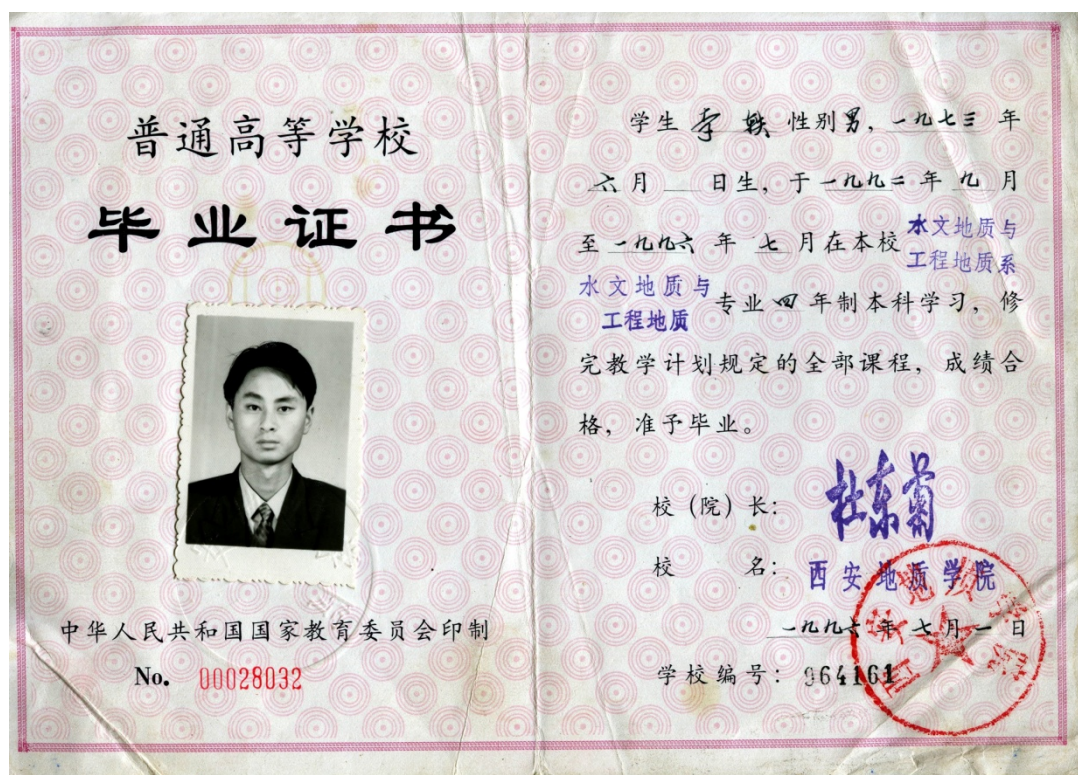 普通高等学校
毕业证书
中华人民共和国国家教育委员会印制
No. 00028032
学生 李轶 性别男，一九七三年
六月 日生，于一九九二年九月
至一九九六年七月在本校 水文地质与工程地质系
水文地质与工程地质 专业四年制本科学习，修
完教学计划规定的全部课程，成绩合
格，准予毕业。
校（院）长：杜东菊
校 名：西安地质学院
一九九六年七月一日
学校编号：964161
西安地质学院